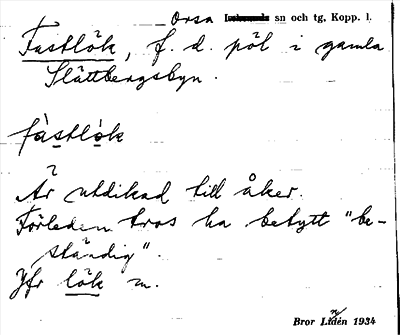 Orsa sn och tg, Kopp. l.
Fastlök, f. d. pöl i gamla
Slättbergsbyn.
fàstlòk
Är utdikad till åker.
Förleden tros ha betytt "be-
ständig".
Jfr lök m.
Bror Lidén 1934